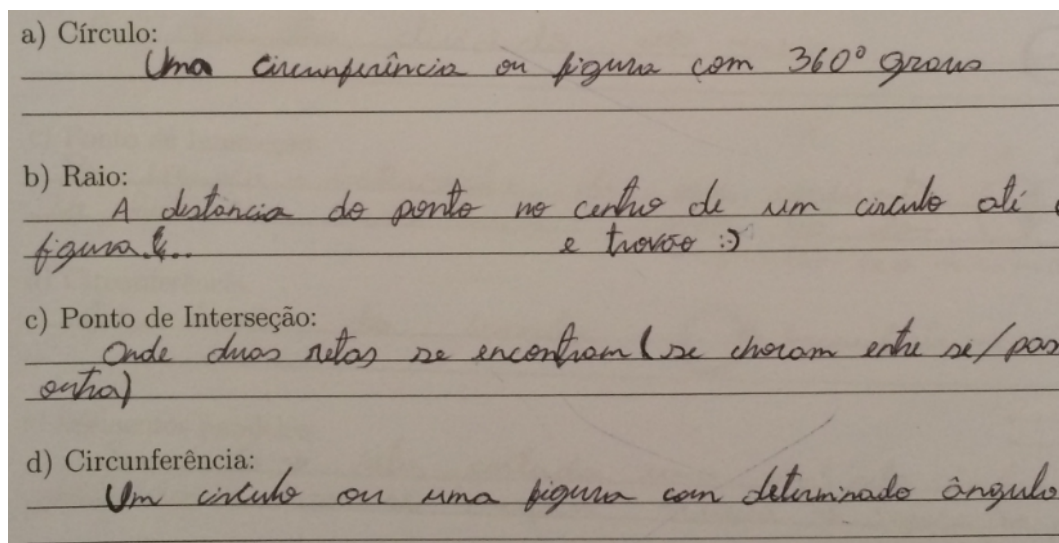 a) Círculo:
Uma circunferência ou figura com 360° graus
b) Raio:
A distância do ponto no centro de um círculo até
figura... e trovão :)
c) Ponto de Interseção:
Onde duas retas se encontram (se chocam entre si/pas
outra)
d) Circunferência:
Um círculo ou uma figura com determinado ângulo